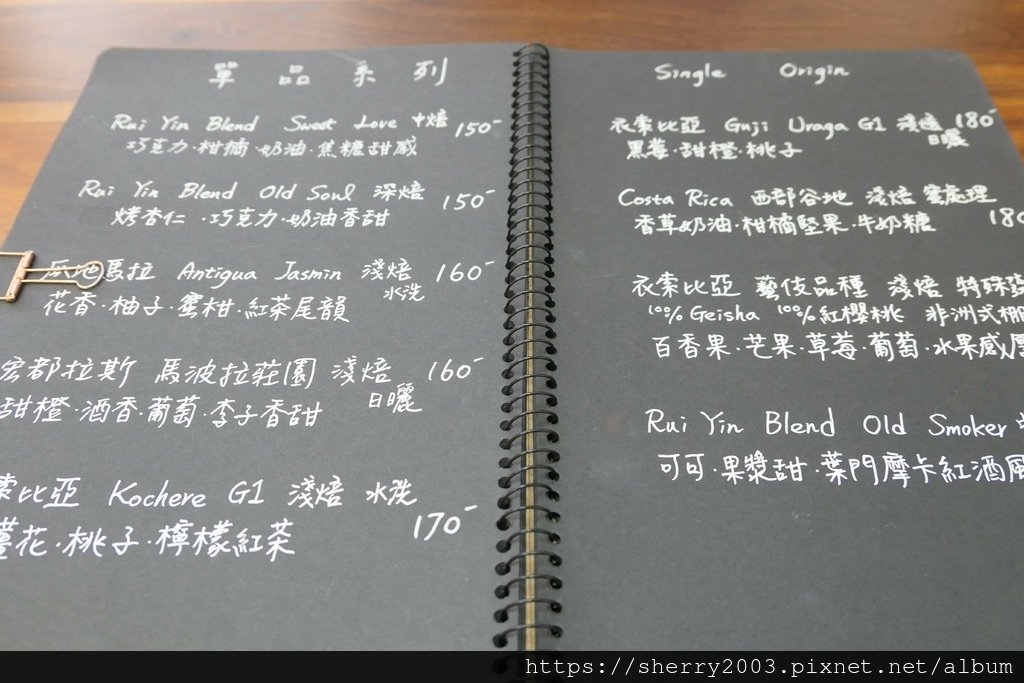 單品系列
Rui Yin Blend Sweet Love 中焙 150-
巧克力·柑橘·奶油·焦糖甜感
Rui Yin Blend Old Soul 深焙 150-
烤杏仁·巧克力·奶油香甜
瓜地馬拉 Antigua Jasmin 淺焙 160-
水洗
花香·柚子·蜜柑·紅茶尾韻
宏都拉斯 馬波拉莊園 淺焙 160-
日曬
甜橙·酒香·葡萄·李子香甜
索比亞 Kochere G1 淺焙 水洗
170-
薑花·桃子·檸檬紅茶
Single Origin
衣索比亞 Guji Uraga G1 淺焙 180-
日曬
黑莓·甜橙·桃子
Costa Rica 西部谷地 淺焙 蜜處理
180
香草奶油·柑橘堅果·牛奶糖
衣索比亞 藝伎品種 淺焙 特殊
100% Geisha 100%紅櫻桃 非洲式棚
百香果·芒果·草莓·葡萄·水果感厚
Rui Yin Blend Old Smoker
可可·果漿甜·葉門摩卡紅酒風
https://sherry2003.pixnet.net/album